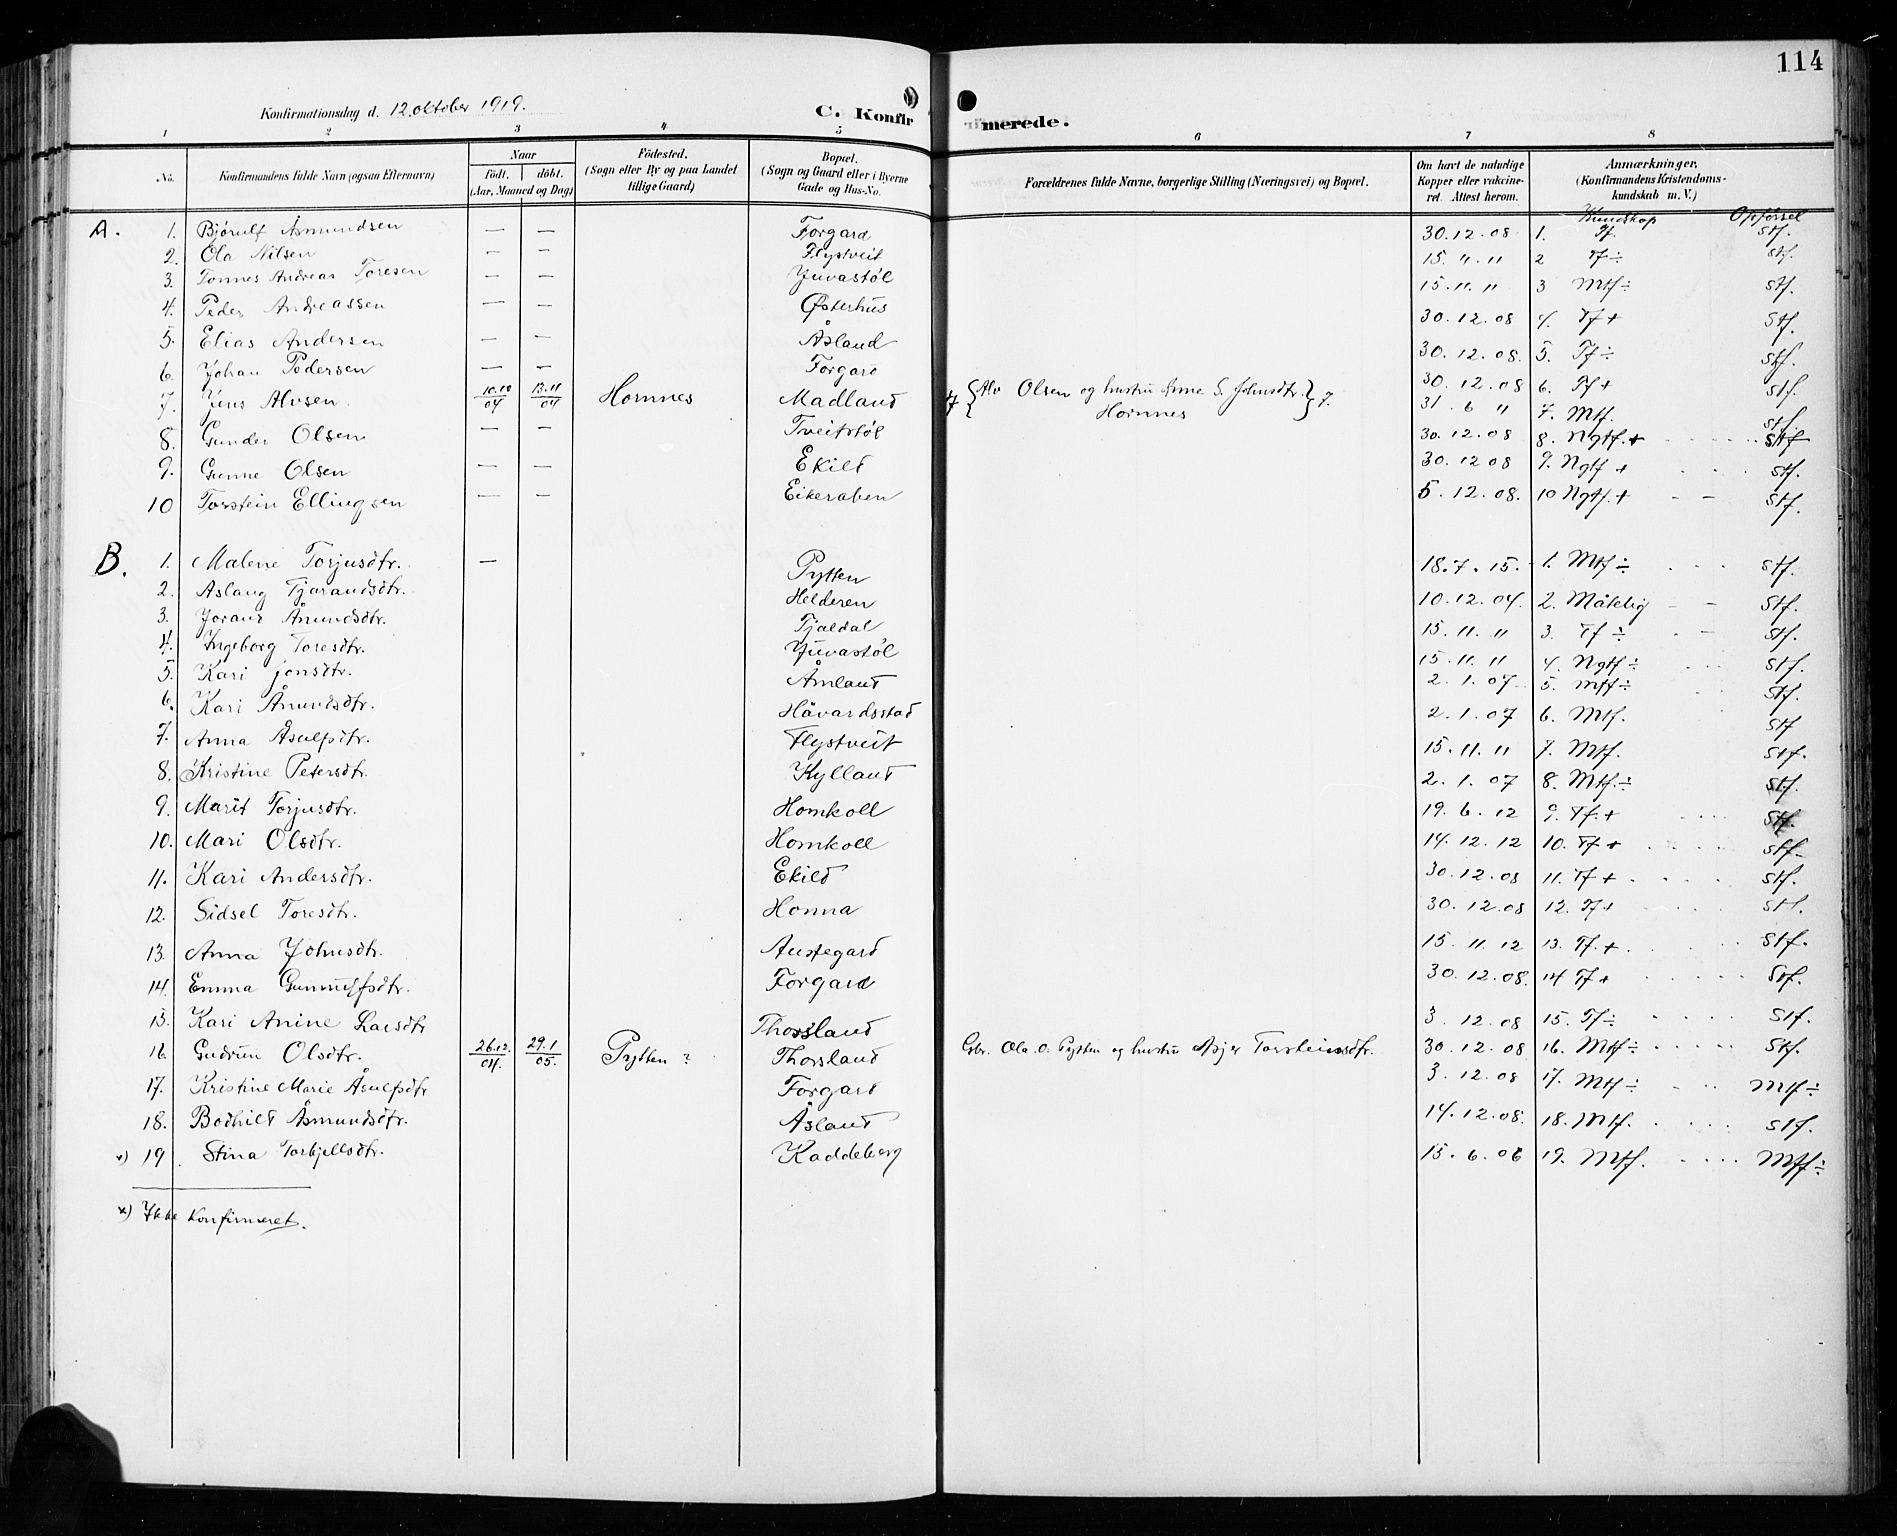 114
Konfirmationsdag d. 12. oktober 1919. C. Konfirmerede.
1 2 3 4 5 6 7 8
No. Konfirmandens fulde Navn (ogsaa Efternavn) Naar födt. döbt. (Aar, Maaned og Dag) Födested. (Sogn eller By og paa Landet tillige Gaard) Bopæl. (Sogn og Gaard eller i Byerne Gade og Hus-No. Forældrenes fulde Navne, borgerlige Stilling (Næringsvei) og Bopæl. Om havt de naturlige Kopper eller vakcineret. Attest herom. Anmærkninger. (Konfirmandens Kristendomskundskab m. V.)
Kundskap Opførsel
A. 1. Bjørulf Åsmundsen — — Forgard 30.12.08 1. Tf. Stf.
2. Ola Nilsen — — Flystveit 15.11.11 2 Tf ÷ Stf.
3. Tonnes Andreas Toresen — — Juvastøl 15.11.11 3 Mtf ÷ Stf.
4. Peder Andreassen — — Østerhus 30.12.08 4. Tf + Stf.
5. Elias Andersen — — Åsland 30.12.08. 5. Tf ÷ Stf.
6. Johan Pedersen — — Forgard 30.12.08 6. Tf + Stf.
7. Jens Alvsen. 10.10/04 13.11/04 Hornnes Madland 7 {Alv Olsen og hustru Anne S. Johnsdtr. Hornnes} 7. 31.6 " 7. Mtf. Stf.
8. Gunder Olsen — — Tveitstøl 30.12.08 8. Ngtf. + Stf
9. Gunne Olsen — — Ekild 30.12 08 9. Ngtf + Stf.
10 Torstein Ellingsen — — Eikeraaben 5.12.08. 10 Ngtf. + Stf.
B. 1. Malene Torjusdtr. — Pytten 18.7.15. 1. Mtf ÷ Stf.
2. Aslaug Tjarandsdtr. Helderen 10.12.04. 2. Måtelig Stf.
3. Jorand Ånundsdtr. Tjaldal 15.11.11 3. Tf ÷ Stf.
4. Ingeborg Toresdtr. Juvastøl 15.11.11 4. Ngtf ÷ Stf.
5. Kari Jonsdtr. Åmland 2.1.07 5. Mtf ÷ Stf.
6. Kari Ånundsdtr. Håvardsstad 2.1.07 6. Mtf. Stf
7. Anna Åsulfsdtr. Flystveit 15.11.11 7. Mtf. Stf.
8. Kristine Petersdtr. Kylland 2.1.07 8. Mtf. ÷ Stf.
9. Marit Torjusdtr. Homkoll 19.6.12 9. Tf. + Stf.
10. Mari Olsdtr. Homkoll 14.12.12 10. Tf + Stf.
11. Kari Andersdtr. Ekild 30.12.08 11. Tf + Stf.
12. Sidsel Toresdtr. Honna 30.12.08 12. Tf + Stf.
13. Anna Johnsdtr. Austegard 15.11.12 13. Tf. + Stf.
14. Emma Gunnulfsdtr. Forgard 30.12.08. 14 Tf + Stf.
15. Kari Anine Larsdtr Thorsland 3.12.08 15. Tf ÷ Stf.
16. Gudrun Olsdtr. 26.12./04. 29.1/05. Pytten ? Thorsland Gbr. Ola O. Pytten og hustru Asjer Torsteinsdtr. 30.12.08 16. Mtf ÷ Stf.
17. Kristine Marie Åsulfsdtr Forgard 3.12.08 17. Mtf ÷ Mtf ÷
18. Bodhild Åsmundsdtr. Åsland 14.12.08. 18. Mtf. Stf.
x) 19. Stina Torkjellsdtr. Kaddeberg 15.6.06 19. Mtf. Mtf ÷
x) Ikke Konfirmeret.